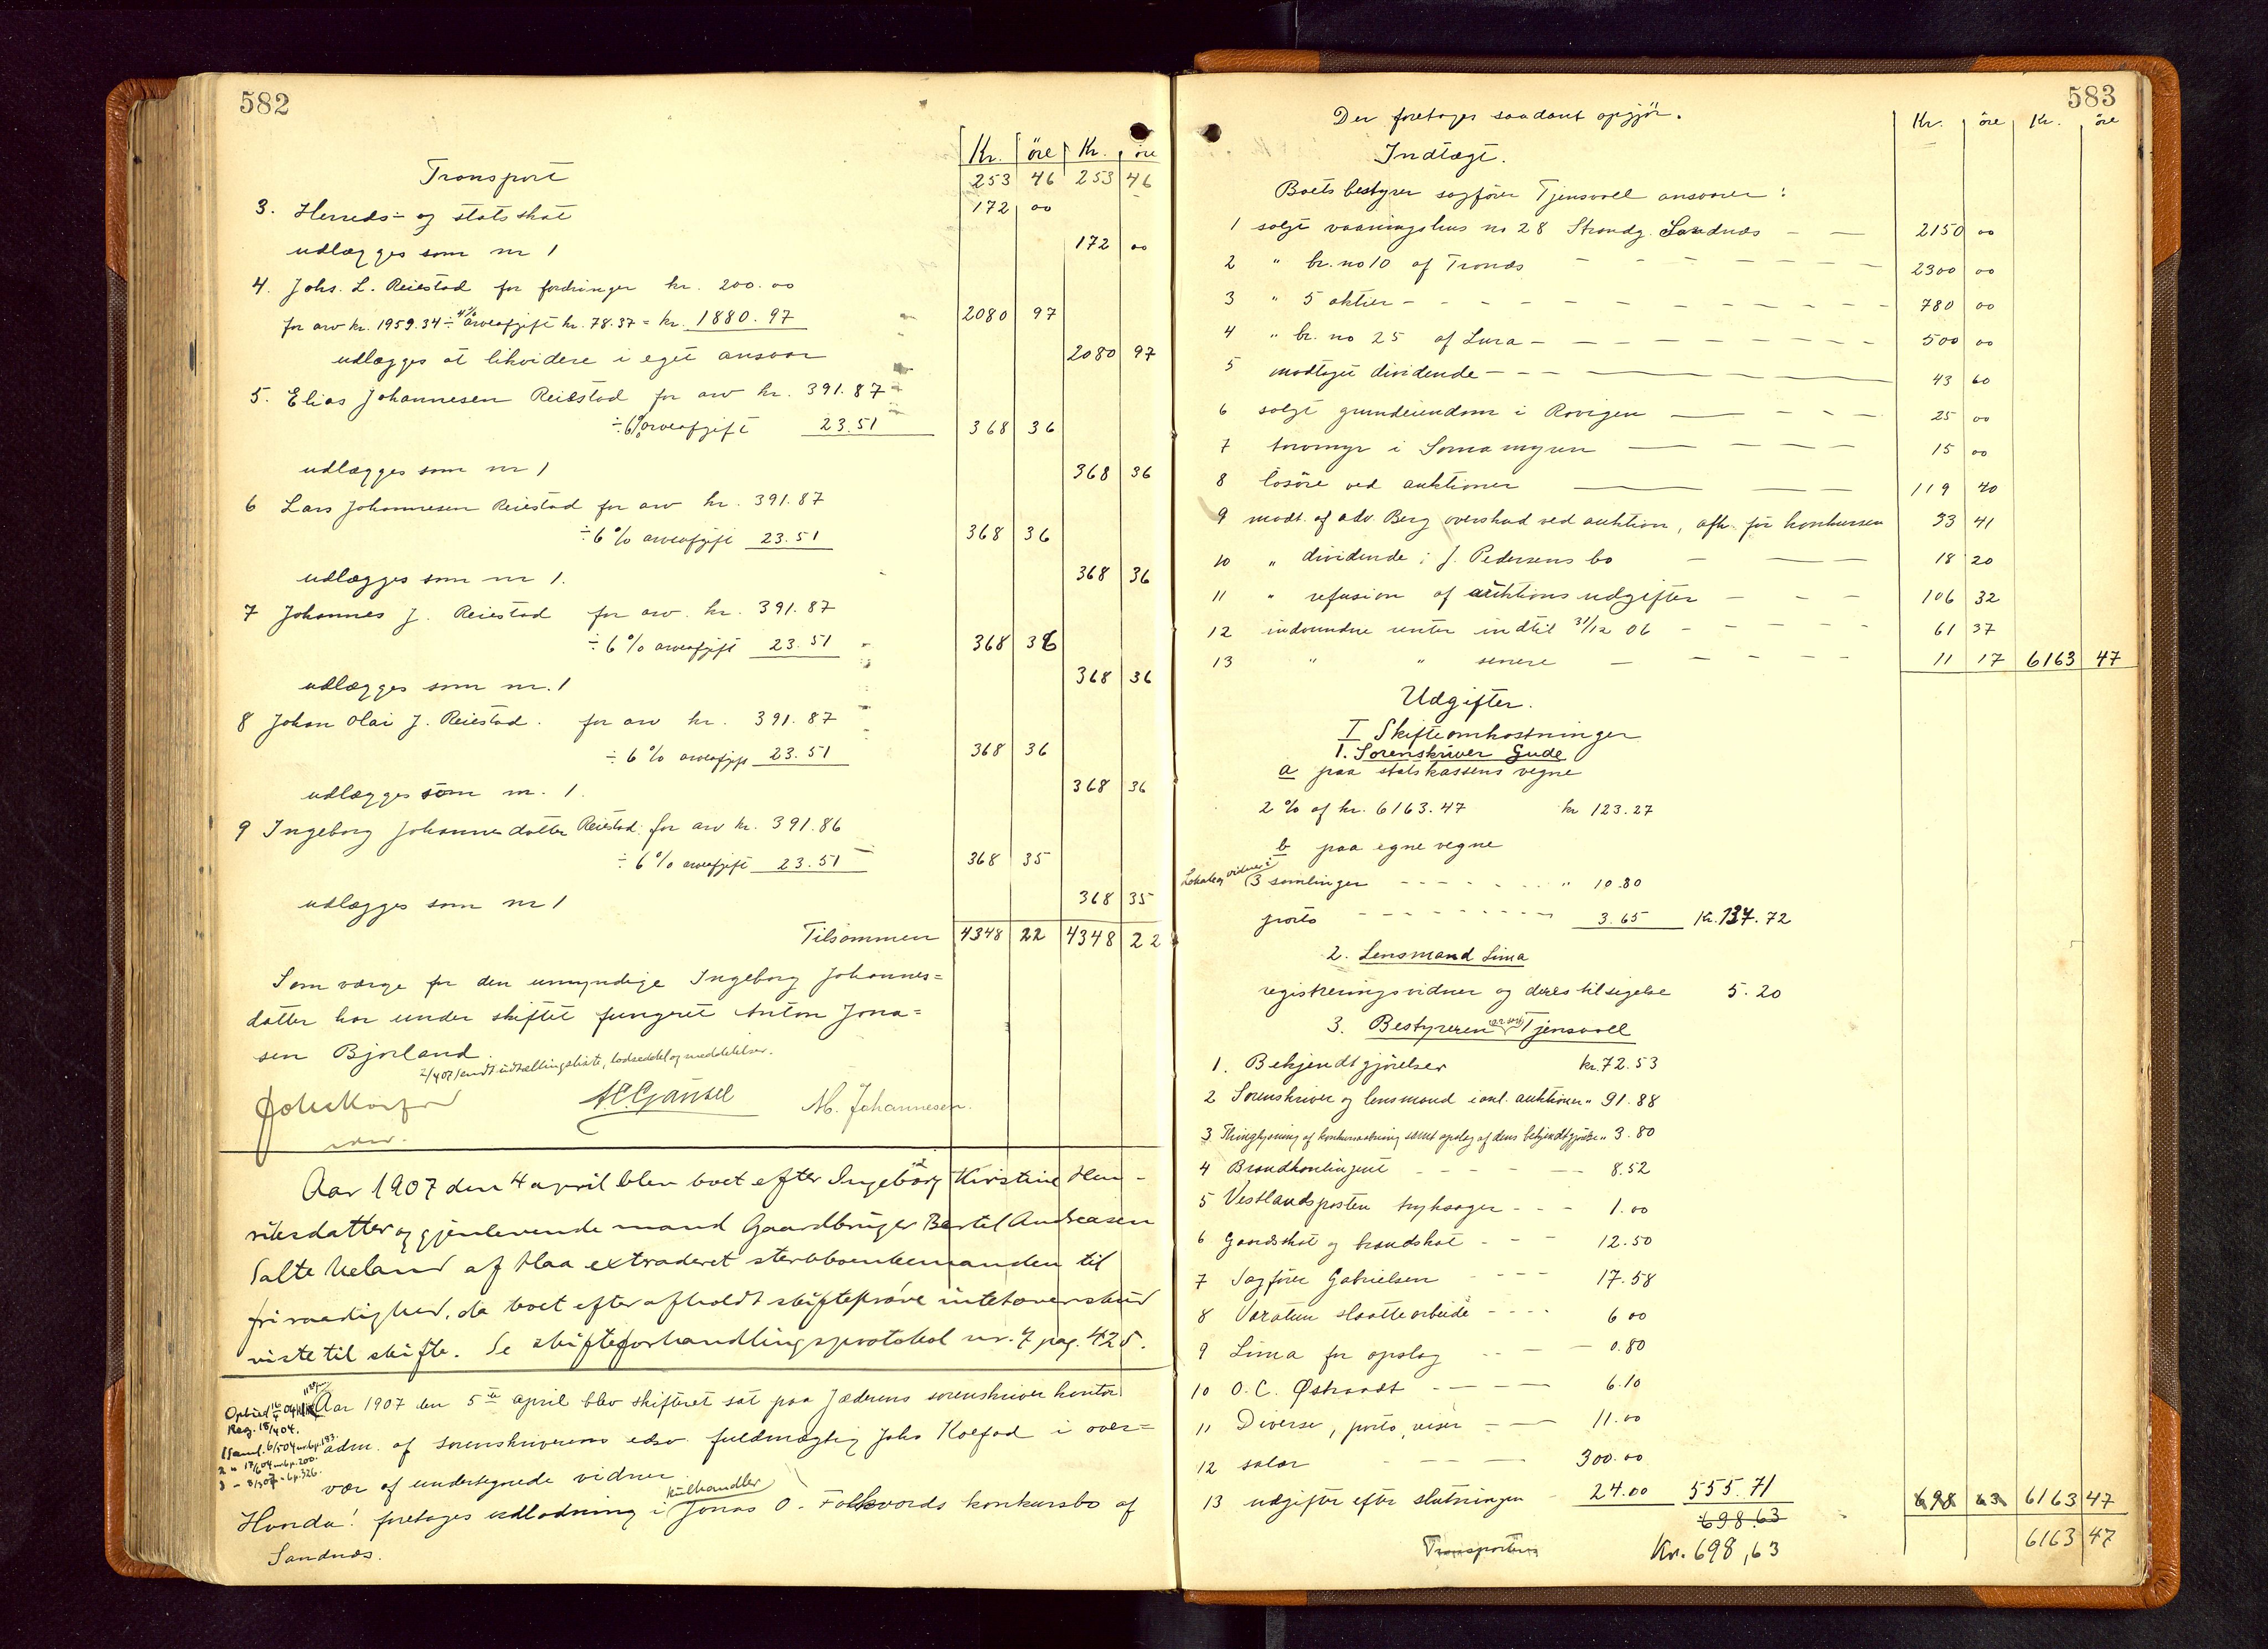 582
Kr. øre Kr. øre
Transport 253 46 253 46
3. Herreds- og statsskat 172 00
udlægges som nr 1 172 00
4. Johs. L. Reiestad for fordringer kr. 200.00
for arv kr. 1959.34 ÷ 4% arveafgift kr. 78.37 = kr. 1880.97 2080 97
udlægges at likvidere i eget ansvar 2080 97
5. Elias Johannesen Reiestad for arv kr. 391.87
÷ 6% arveafgift 23.51 368 36
udlægges som nr 1 368 36
6 Lars Johannesen Reiestad for arv kr. 391.87
÷ 6% arveafgift 23.51 368 36
udlægges som nr 1. 368 36
7 Johannes J. Reiestad for arv. kr. 391.87
÷ 6% arveafgift 23.51 368 36
udlægges som nr. 1 368 36
8 Johan Olai J. Reiestad. for arv kr. 391.87
÷ 6% arveafgift 23.51 368 36
udlægges som nr. 1. 368 36
9 Ingeborg Johannesdatter Reiestad for arv kr. 391.86
÷ 6% arveafgift 23.51 368 35
udlægges som nr 1 368 35
Tilsammen 4348 22 4348 22
Som værge for den umyndige Ingeborg Johannes=
datter har under skiftet fungeret Anton Jona=
sen Bjorland.
2/4 07 sendt udstillingsliste, lodseddel og meddelelser.
M. Johannesen.
Aar 1907 den 4 april blev boet efter Ingeborg Kirstine Hen-
riksdatter og gjenlevende mand Gaardbruger Bertel Andreasen
Salte Ueland af Haa extraderet sterbboenkemanden til
fri raadighed, da boet efter afholdt skifteprøve intet overskud
viste til skifte. Se skifteforhandlingsprotokol nr. 7 pag. 425.
Aar 1907 den 5te april blev skifteret sat paa Jæderens sorenskriver kontor
Reg. 18/4 04.
adm. af sorenskriverens edsv. fuldmægtig Johs Kolfod i over=
vær af undertegnede vidner.
Hvorda! foretages udlodning i kulhandler Jonas O. Folkvords konkursbo af
Sandnæs.
583
Der foretages saadant opgjör. Kr. øre Kr. øre
Indtægt.
Boets bestyrer sagförer Tjensvoll ansvarer:
1 solgt vaaningshus no 28 Strandg. Sandnæs — — 2150 00
2 " br. no 10 af Tronæs — — 2300 00
3 " 5 aktier — — 780 00
4 " br. no 25 af Lura — — 500 00
5 modtaget dividende — — 43 60
6 solgt grundeiendom i Rovigen — — 25 00
7 torvmyr i Somamyren — — 15 00
8 lösöre ved auktioner — — 119 40
9 modt. af adv. Berg overskud ved auktion, afh. för konkursen 33 41
10 " dividende i J. Pedersens bo — — 18 20
11 " refusion af auktionsudgifter — — 106 32
12 indvundne renter indtil 31/12 06 — — 61 37
13 " " senere — — 11 17 6163 47
Udgifter.
I Skifteomkostninger
1. Sorenskriver Gude
a paa statskassens vegne
2 % af kr. 6163.47 kr 123.27
b paa egne vegne
Lokale og vidner i 3 samlinger " 10.80
porto 3.65 Kr. 137.72
2. Lensmand Lima
registreringsvidner og deres tilsigelse 5.20
3. Bestyreren Tjensvoll
1. Bekjendtgjörelser kr. 72.53
2 Sorenskriver og lensmand i anl. auktioner " 91.88
3 Thinglysning af konkursaabning samt opslag af dens bekjendtgjörelse " 3.80
4 Brandkontingent 8.52
5 Vestlandsposten tryksager 1.00
6 Gaardsskat og brandskat 12.50
7 Sagförer Gabrielsen 17.58
8 Varatun slaattearbeide 6 00
9 Lima for opslag 0.80
10 O. C. Østraadt 6.10
11 Diverse, porto, reiser 11.00
12 salær 300.00
13 udgifter efter slutningen 24.00 555.71 698 63 6163 47
698.63
Transporteres Kr. 698,63 6163 47